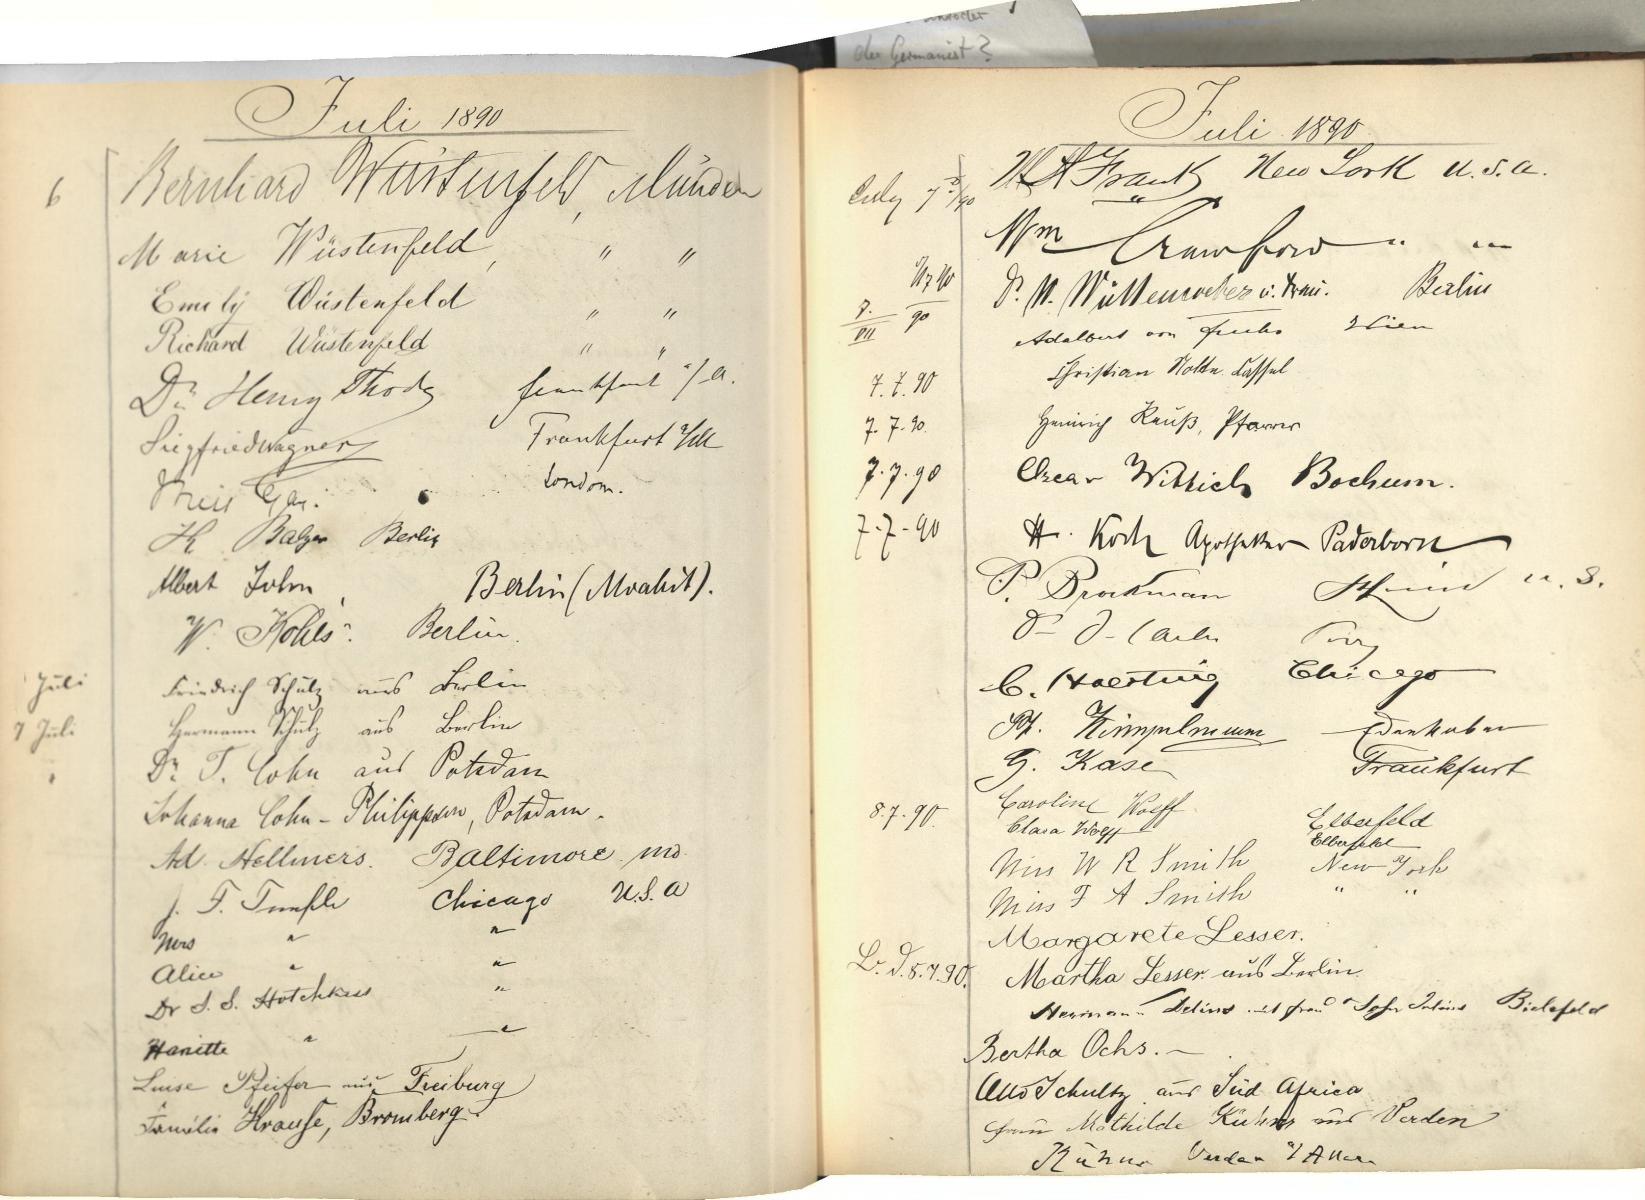 der Germanist?
Juli 1890
6
Bernhard Wüstenfeld, Münden
Marie Wüstenfeld, " "
Emily Wüstenfeld " "
Richard Wüstenfeld " "
Dr. Henry Thode Frankfurt a/M.
Siegfried Wagner Frankfurt a/M
London.
Berlin
Albert John, Berlin (Moabit).
W. Kohls. Berlin.
Juli Friedrich Schulz aus Berlin
7 Juli Hermann Schulz aus Berlin
Dr. T. Cohn aus Potsdam
Johanna Cohn-Philippson, Potsdam.
Ad. Hellmers. Baltimore Md.
J. F. Temple Chicago U.S.A
Mrs " "
Alice " "
Dr S. S. Hotchkiss "
Hariette " "
Luise Pfeifer aus Freiburg
Familie Krause, Bromberg
Juli 1890
July 7th/90 Frank New York U.S.A.
Wm Crawford " "
Dr. W. u. Frau. Berlin
7./VII 90 Adalbert von Fuchs Wien
7.7.90 Christian Nolte Cassel
7.7.90. Heinrich Pfarrer
7.7.90 Oscar Wittich Bochum.
7-7-90 H. Koch Apotheker Paderborn
P. Brockman U.S.
C. Chicago
Edenkoben
G. Kase Frankfurt
8.7.90. Caroline Wolff Elberfeld
Clara Wolff Elberfeld
Miss W R Smith New York
Miss F A Smith " "
Margarete Lesser.
8.7.90. Martha Lesser aus Berlin.
Hermann Delius mit Frau Bielefeld
Bertha Ochs.
Otto Schultz aus Süd Africa
Frau Mathilde Kühne aus Verden
Kühne Verden a/Aller